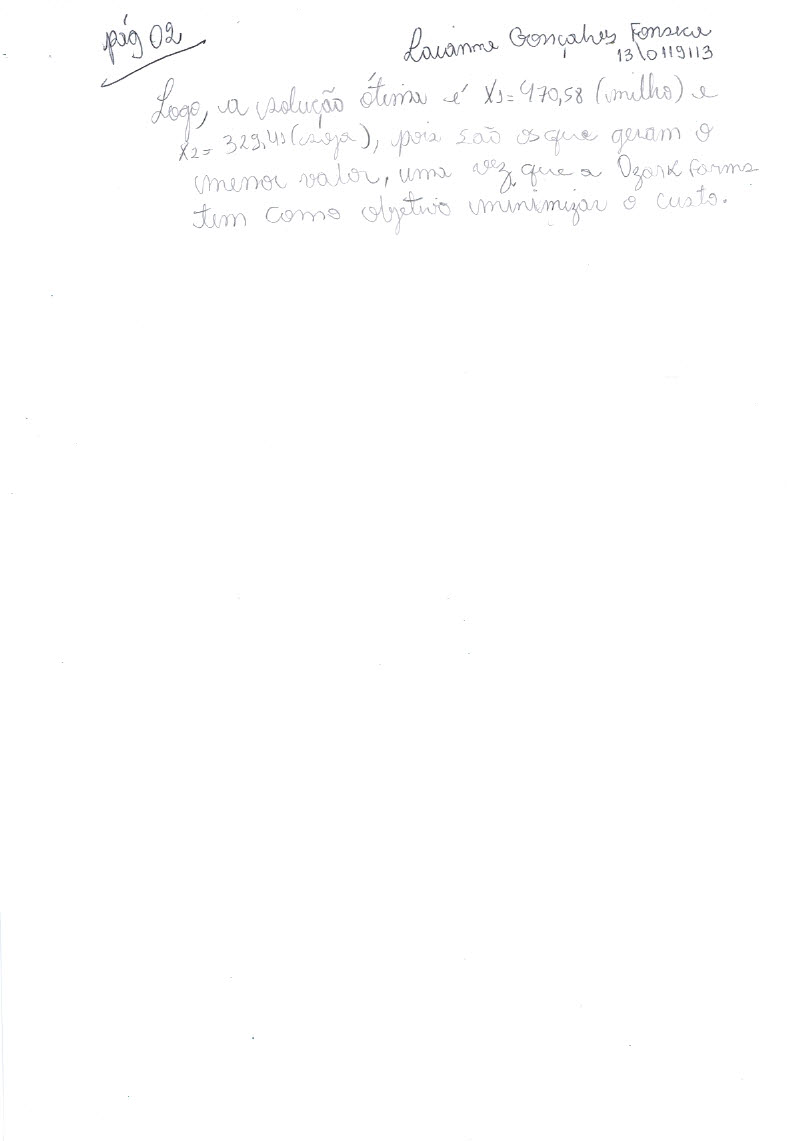 pág 02
Laianne Gonçalves Fonseca
13\0119113
Logo, a solução ótima é X1=470,58 (milho) e
X2= 329,41 (soja), pois são os que geram o
menor valor, uma vez que a Ozark Farms
tem como objetivo minimizar o custo.